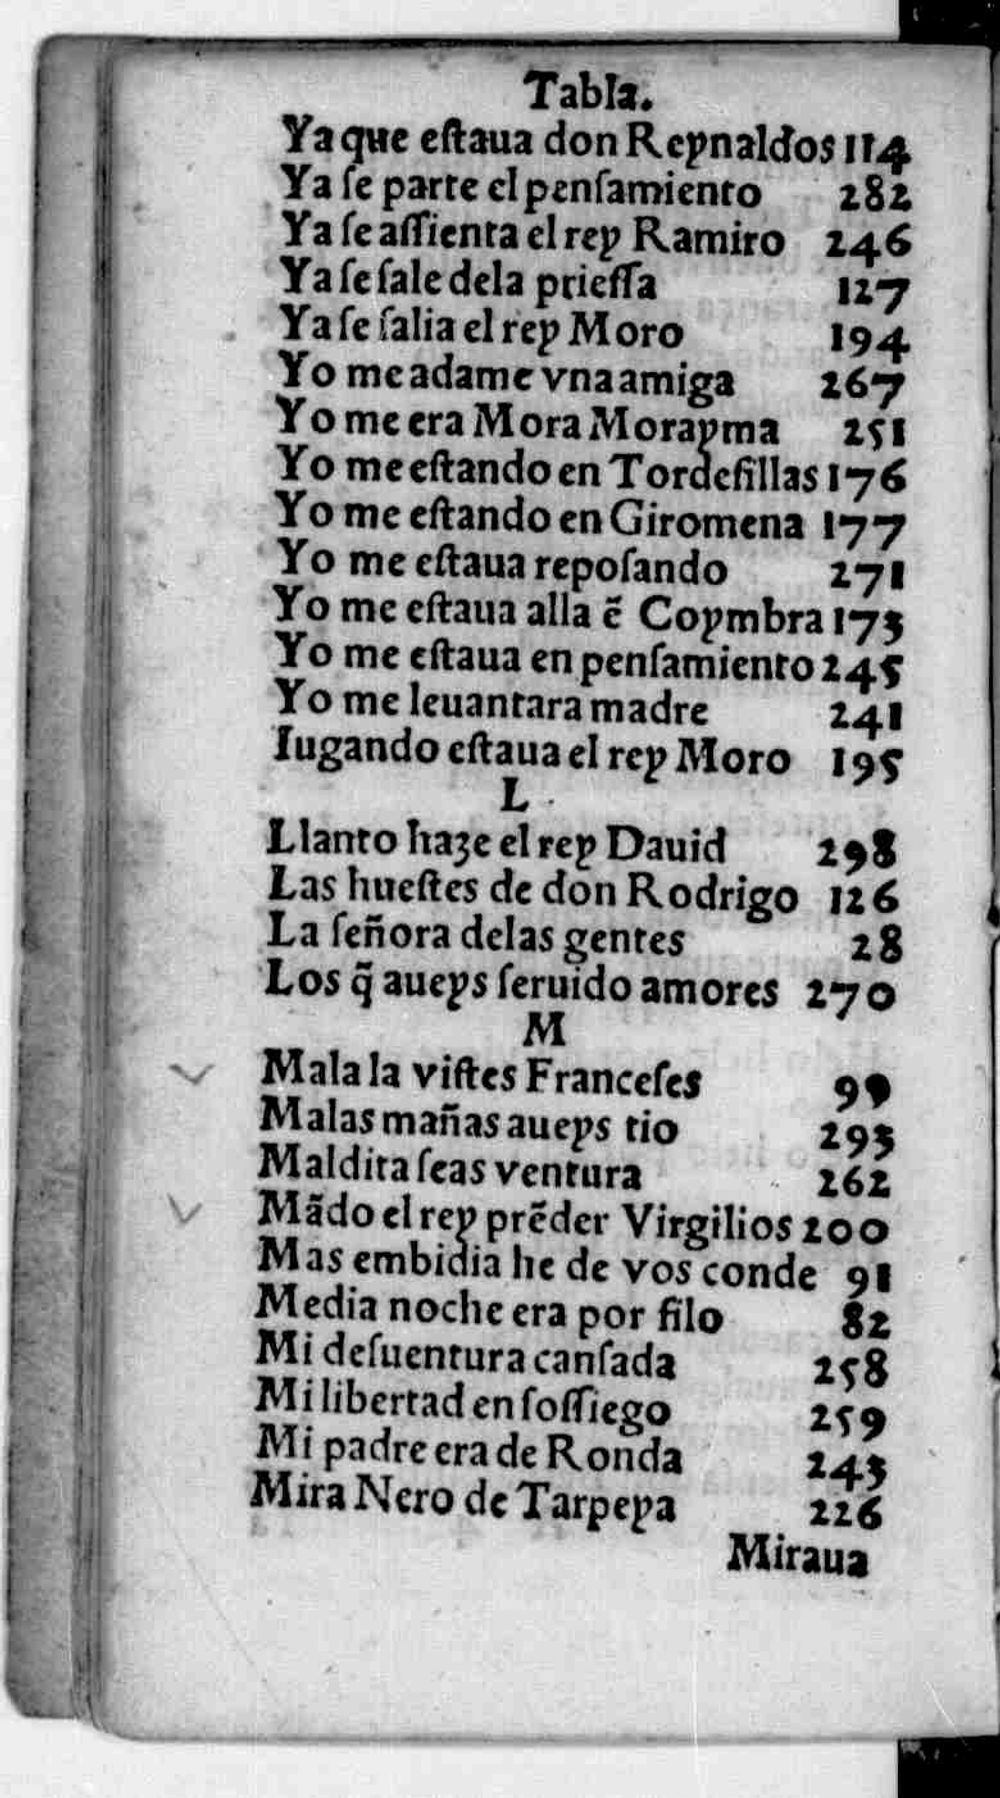 Tabla.
Ya que eſtaua don Reynaldos 114
Ya ſe parte el penſamiento 282
Ya ſe aſſienta el rey Ramiro 246
Ya ſe ſale dela prieſſa 127
Ya ſe ſalia el rey Moro 194
Yo me adame vna amiga 267
Yo me era Mora Morayma 251
Yo me eſtando en Tordeſillas 176
Yo me eſtando en Giromena 177
Yo me eſtaua repoſando 271
Yo me eſtaua alla ẽ Coymbra 173
Yo me eſtaua en penſamiento 245
Yo me leuantara madre 241
Iugando eſtaua el rey Moro 195
L
Llanto haze el rey Dauid 298
Las hueſtes de don Rodrigo 126
La ſeñora delas gentes 28
Los q̃ aueys ſeruido amores 270
M
Mala la viſtes Franceſes 99
Malas mañas aueys tio 293
Maldita ſeas ventura 262
Mãdo el rey prẽder Virgilios 200
Mas embidia he de vos conde 91
Media noche era por filo 82
Mi deſuentura canſada 258
Mi libertad en ſoſſiego 259
Mi padre era de Ronda 243
Mira Nero de Tarpeya 226
Miraua